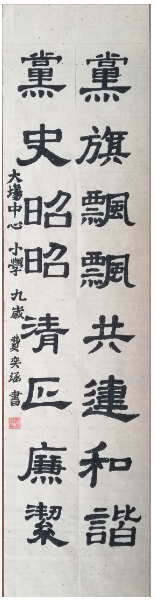 黨旗飄飄共建和諧
黨史昭昭清正廉潔
大場中心小學 九歲 費奕涵書